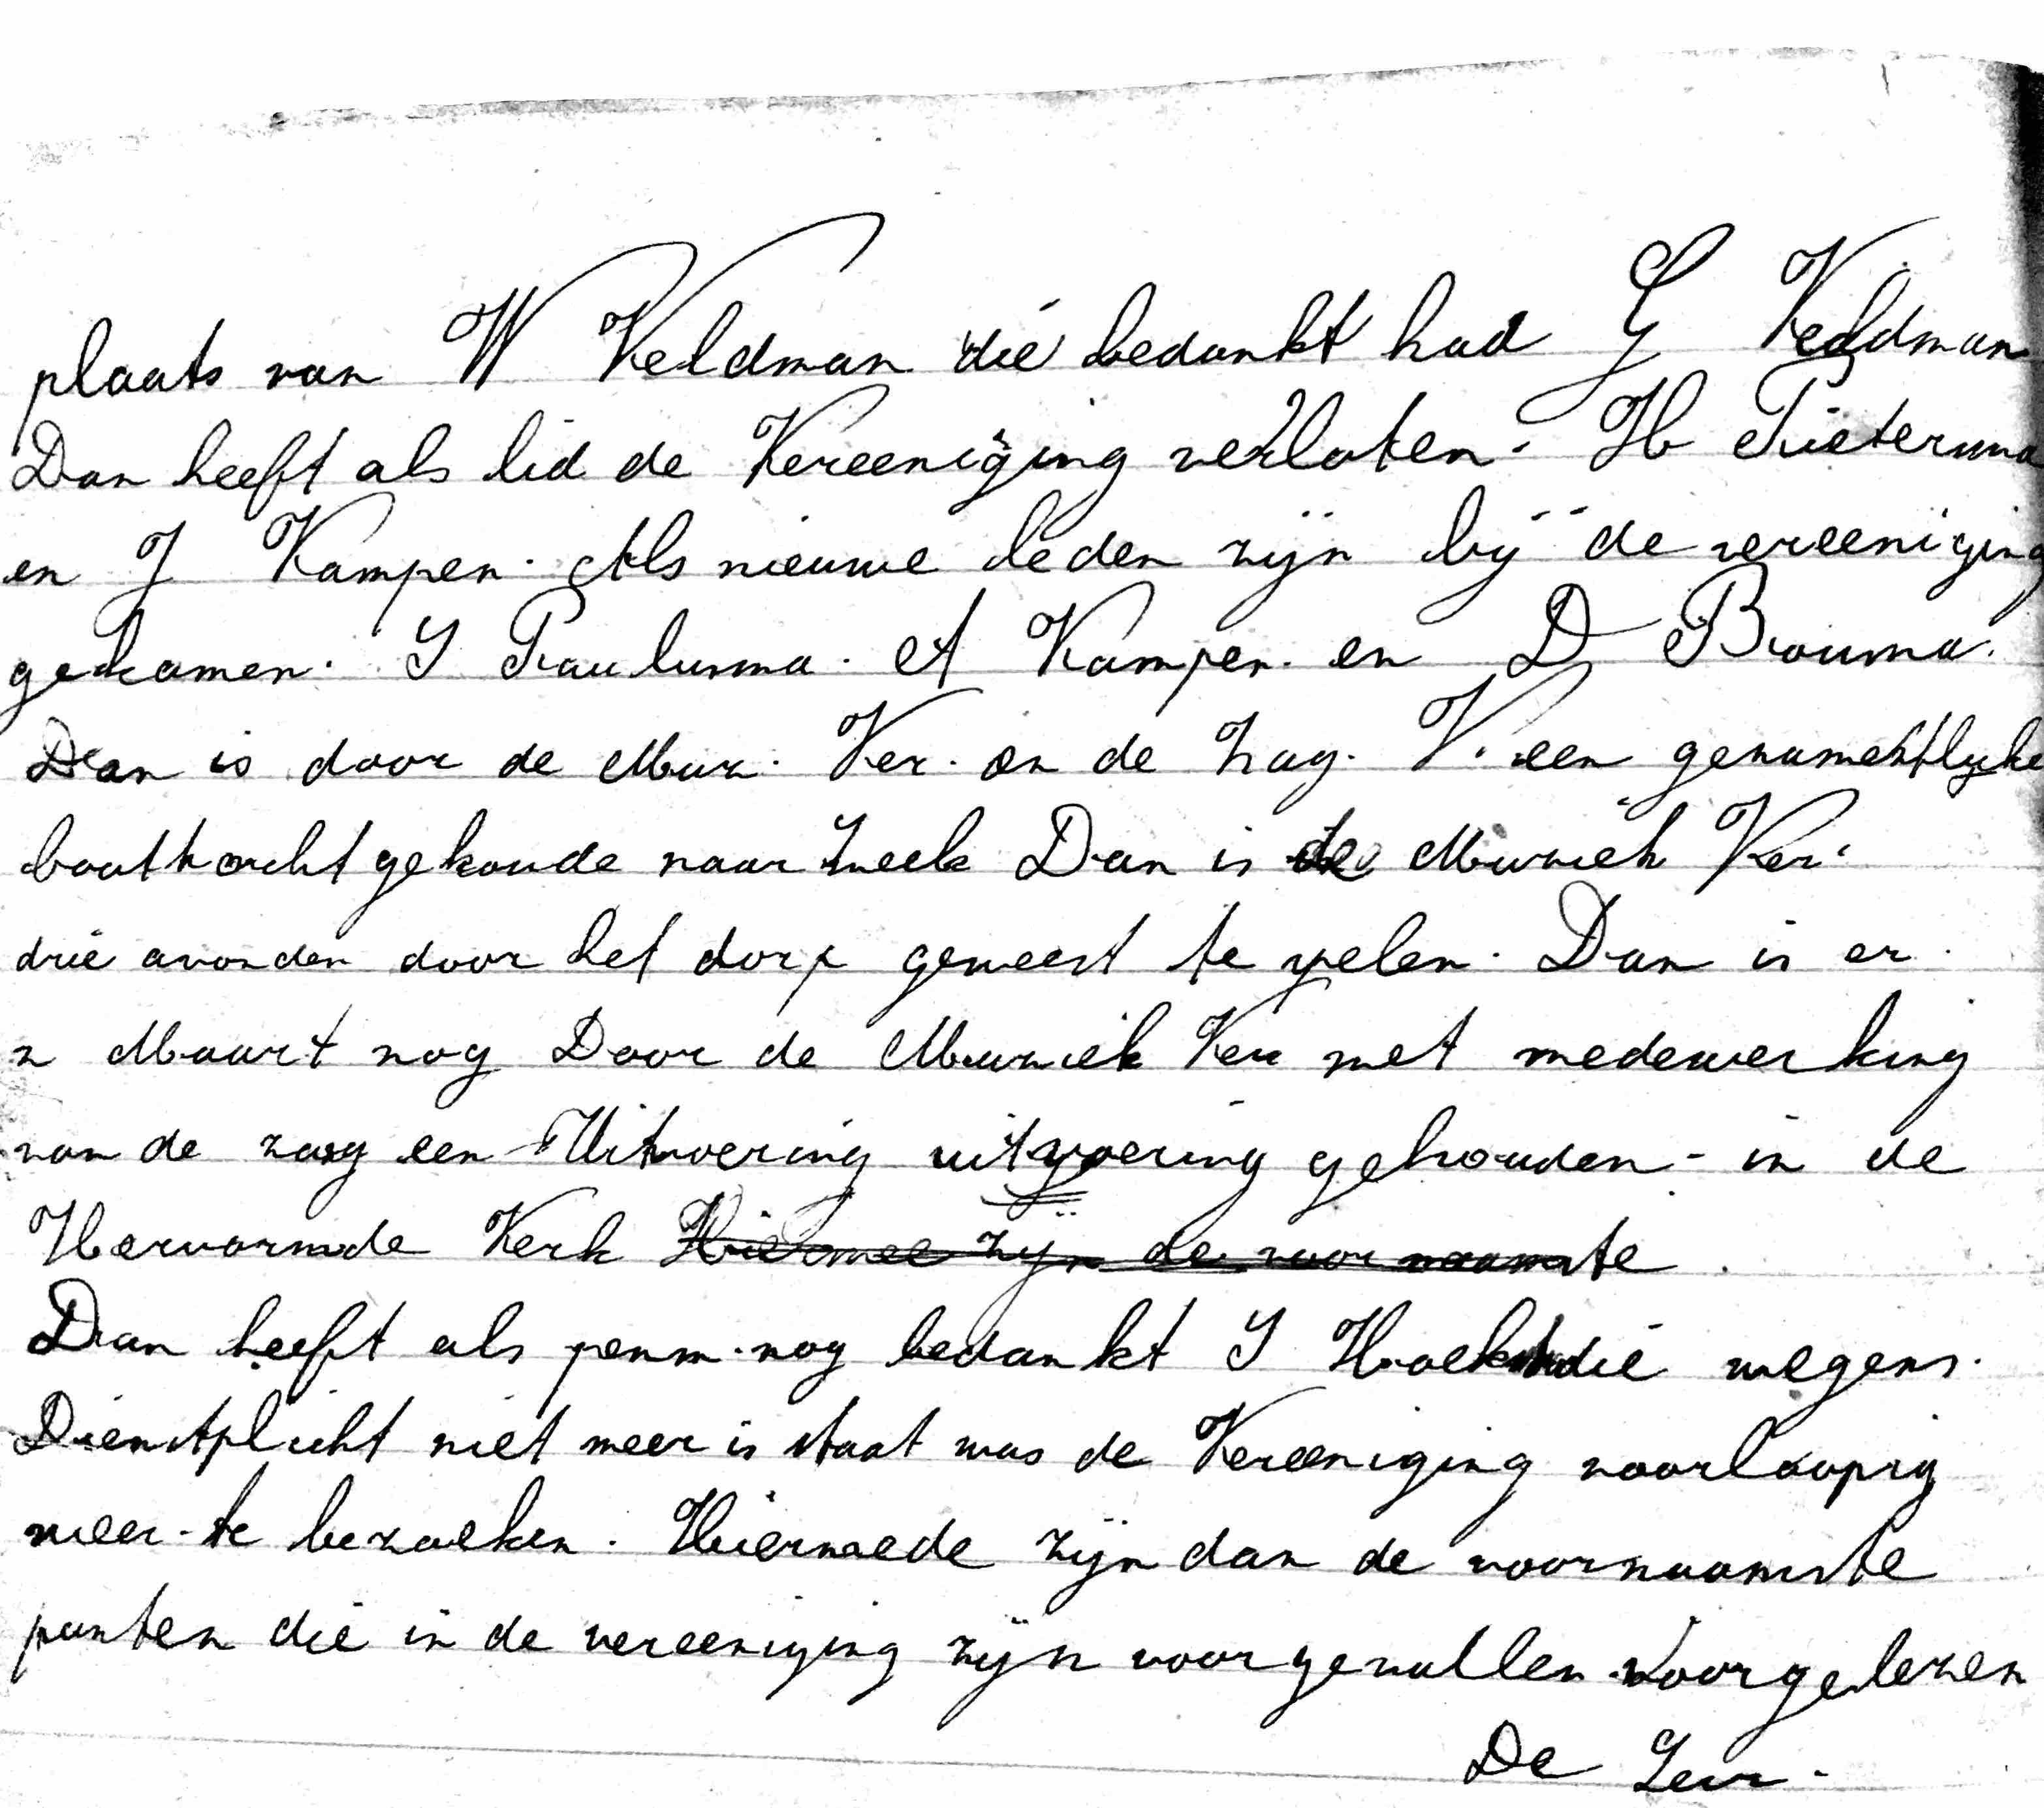 plaats van W Veldman die bedankt had G Veldman
Dan heeft als lid de Vereeniging verlaten. H Pietersma
en J Kampen. Als nieuwe leden zijn bij de vereeniging
gekomen. S Paulusma. A Kampen. en D Bouma.
Dan is door de Muz. Ver. en de Zag. V. een
boottocht gehoude naar Sneek Dan is de Muziek Ver.
drie avonden door het dorp geweest te spelen. Dan is er.
n Maart nog Door de Muziek Ver met medewerking
van de zang een Uitvoering uitvoering gehouden - in de
Hervormde Kerk Hiermee zijn de voornaamste
Dan heeft als penm. nog bedankt S die wegens.
Dienstplicht niet meer is staat was de Vereeniging voorloopig
meer te bezoeken. Hiermede zijn dan de voornaamste
punten die in de vereeniging zijn voorgevallen voorgelezen
De Secr.